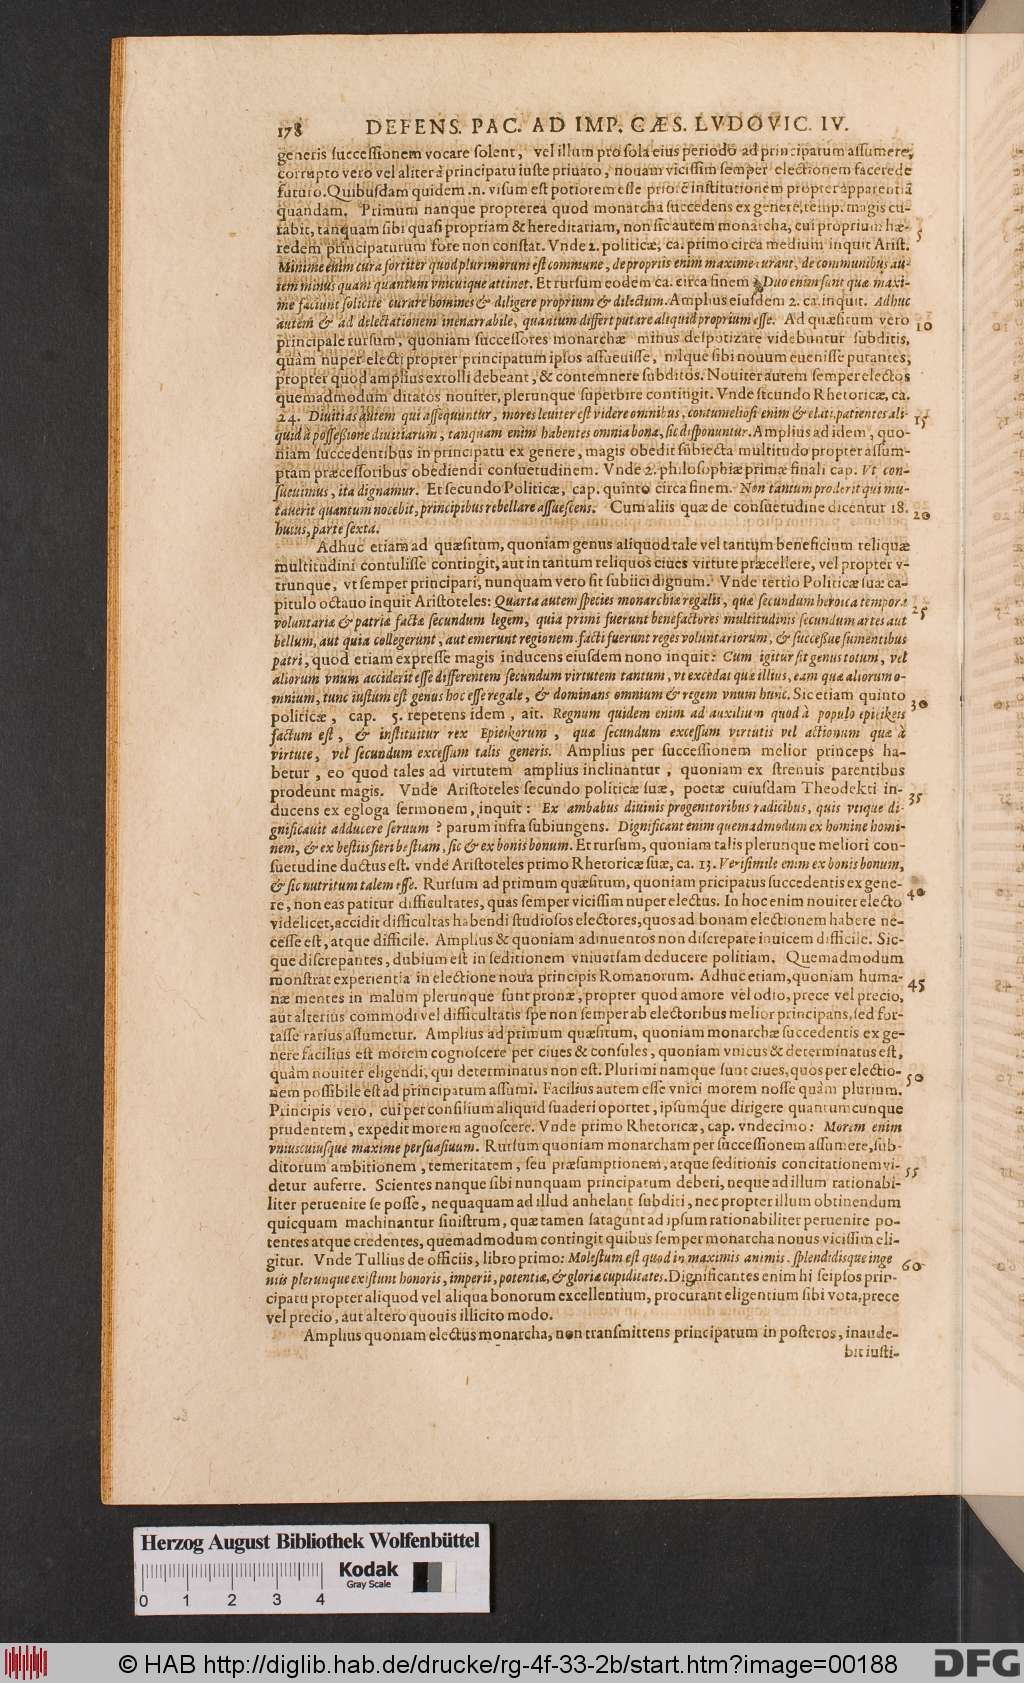 178 DEFENS. PAC. AD IMP. CÆS. LVDOVIC. IV.
generis successionem vocare solent, vel illum pro sola eius periodo ad principatum assumere,
corrupto vero vel aliter à principatu iuste priuato, nouam vicissim semper electionem facere de
futuro. Quibusdam quidem .n. visum est potiorem esse priorē institutionem propter apparentiā
quandam. Primum nanque propterea quod monarcha succedens ex genere, remp. magis cu-
rabit, tanquam sibi quasi propriam & hereditariam, non sic autem monarcha, cui proprium hæ-
redem principaturum fore non constat. Vnde 2. politicæ, ca. primo circa medium inquit Arist. 5
Minime enim cura fortiter quod plurimorum est commune, de propriis enim maxime curant, de communibus au-
tem minus quàm quantum vnicuique attinet. Et rursum eodem ca. circa finem: Duo enim sunt quæ maxi-
me faciunt solicite curare homines & diligere proprium & dilectum. Amplius eiusdem 2. ca. inquit. Adhuc
autem & ad delectationem inenarrabile, quantum differt putare aliquid proprium esse. Ad quæsitum vero 10
principale rursum, quoniam successores monarchæ minus despotizare videbuntur subditis,
quàm nuper electi propter principatum ipsos assueuisse, nilque sibi nouum euenisse putantes,
propter quod amplius extolli debeant, & contemnere subditos. Nouiter autem semper electos
quemadmodum ditatos nouiter, plerunque superbire contingit. Vnde secundo Rhetoricæ, ca.
24. Diuitias autem qui assequuntur, mores leuiter est videre omnibus, contumeliosi enim & elati, patientes ali- 15
quid à possessione diuitiarum, tanquam enim habentes omnia bona, sic disponuntur. Amplius ad idem, quo-
niam succedentibus in principatu ex genere, magis obedit subiecta multitudo propter assum-
ptam præcessoribus obediendi consuetudinem. Vnde 2. philosophiæ primæ finali cap. Vt con-
sueuimus, ita dignamur. Et secundo Politicæ, cap. quinto circa finem. Non tantum proderit qui mu-
tauerit quantum nocebit, principibus rebellare assuescens. Cum aliis quæ de consuetudine dicentur 18. 20
huius, parte sexta.
Adhuc etiam ad quæsitum, quoniam genus aliquod tale vel tantum beneficium reliquæ
multitudini contulisse contingit, aut in tantum reliquos ciues virtute præcellere, vel propter v-
trunque, vt semper principari, nunquam vero sit subiici dignum. Vnde tertio Politicæ suæ ca-
pitulo octauo inquit Aristoteles: Quarta autem species monarchiæ regalis, quæ secundum heroica tempora 25
voluntariæ & patriæ factæ secundum legem, quia primi fuerunt benefactores multitudinis secundum artes aut
bellum, aut quia collegerunt, aut emerunt regionem. facti fuerunt reges voluntariorum, & successue sumentibus
patri, quod etiam expresse magis inducens eiusdem nono inquit: Cum igitur sit genus totum, vel
aliorum vnum acciderit esse differentem secundum virtutem tantum, vt excedat quæ illius, eam quæ aliorum o-
mnium, tunc iustum est genus hoc esse regale, & dominans omnium & regem vnum hunc. Sic etiam quinto 30
politicæ, cap. 5. repetens idem, ait. Regnum quidem enim ad auxilium quod à populo epieikeis
factum est, & instituitur rex Epieikorum, quæ secundum excessum virtutis vel actionum quæ à
virtute, vel secundum excessum talis generis. Amplius per successionem melior princeps ha-
betur, eo quod tales ad virtutem amplius inclinantur, quoniam ex strenuis parentibus
prodeunt magis. Vnde Aristoteles secundo politicæ suæ, poetæ cuiusdam Theodekti in- 35
ducens ex egloga sermonem, inquit: Ex ambabus diuinis progenitoribus radicibus, quis vtique di-
gnificauit adducere seruum? parum infra subiungens. Dignificant enim quemadmodum ex homine homi-
nem, & ex bestiis fieri bestiam, sic & ex bonis bonum. Et rursum, quoniam talis plerunque meliori con-
suetudine ductus est. vnde Aristoteles primo Rhetoricæ suæ, ca. 13. Verisimile enim ex bonis bonum,
& sic nutritum talem esse. Rursum ad primum quæsitum, quoniam pricipatus succedentis ex gene- 40
re, non eas patitur difficultates, quas semper vicissim nuper electus. In hoc enim nouiter electo
videlicet, accidit difficultas habendi studiosos electores, quos ad bonam electionem habere ne-
cesse est, atque difficile. Amplius & quoniam adinuentos non discrepare inuicem difficile. Sic-
que discrepantes, dubium est in seditionem vniuersam deducere politiam. Quemadmodum
monstrat experientia in electione noua principis Romanorum. Adhuc etiam, quoniam huma-
næ mentes in malum plerunque sunt pronæ, propter quod amore vel odio, prece vel precio, 45
aut alterius commodi vel difficultatis spe non semper ab electoribus melior principans, sed for-
tasse rarius assumetur. Amplius ad primum quæsitum, quoniam monarchæ succedentis ex ge-
nere facilius est morem cognoscere per ciues & consules, quoniam vnicus & determinatus est,
quàm nouiter eligendi, qui determinatus non est. Plurimi namque sunt ciues, quos per electio-
nem possibile est ad principatum assumi. Facilius autem esse vnici morem nosse quàm plurium. 50
Principis vero, cui per consilium aliquid suaderi oportet, ipsumque dirigere quantumcunque
prudentem, expedit morem agnoscere. Vnde primo Rhetoricæ, cap. vndecimo: Morem enim
vniuscuiusque maxime persuasiuum. Rursum quoniam monarcham per successionem assumere, sub-
ditorum ambitionem, temeritatem, seu præsumptionem, atque seditionis concitationem vi-
detur auferre. Scientes nanque sibi nunquam principatum deberi, neque ad illum rationabi- 55
liter peruenire se posse, nequaquam ad illud anhelant subditi, nec propter illum obtinendum
quicquam machinantur sinistrum, quæ tamen satagunt ad ipsum rationabiliter peruenire po-
tentes atque credentes, quemadmodum contingit quibus semper monarcha nouus vicissim eli-
gitur. Vnde Tullius de officiis, libro primo: Molestum est quod in maximis animis, splendidisque inge 60
niis plerunque existunt honoris, imperii, potentiæ, & gloriæ cupiditates. Dignificantes enim hi seipsos prin-
cipatu propter aliquod vel aliqua bonorum excellentium, procurant eligentium sibi vota, prece
vel precio, aut altero quouis illicito modo.
Amplius quoniam electus monarcha, non transmittens principatum in posteros, inaude-
bit iusti-
Herzog August Bibliothek Wolfenbüttel
Kodak
Gray Scale
0 1 2 3 4
© HAB http://diglib.hab.de/drucke/rg-4f-33-2b/start.htm?image=00188
DFG